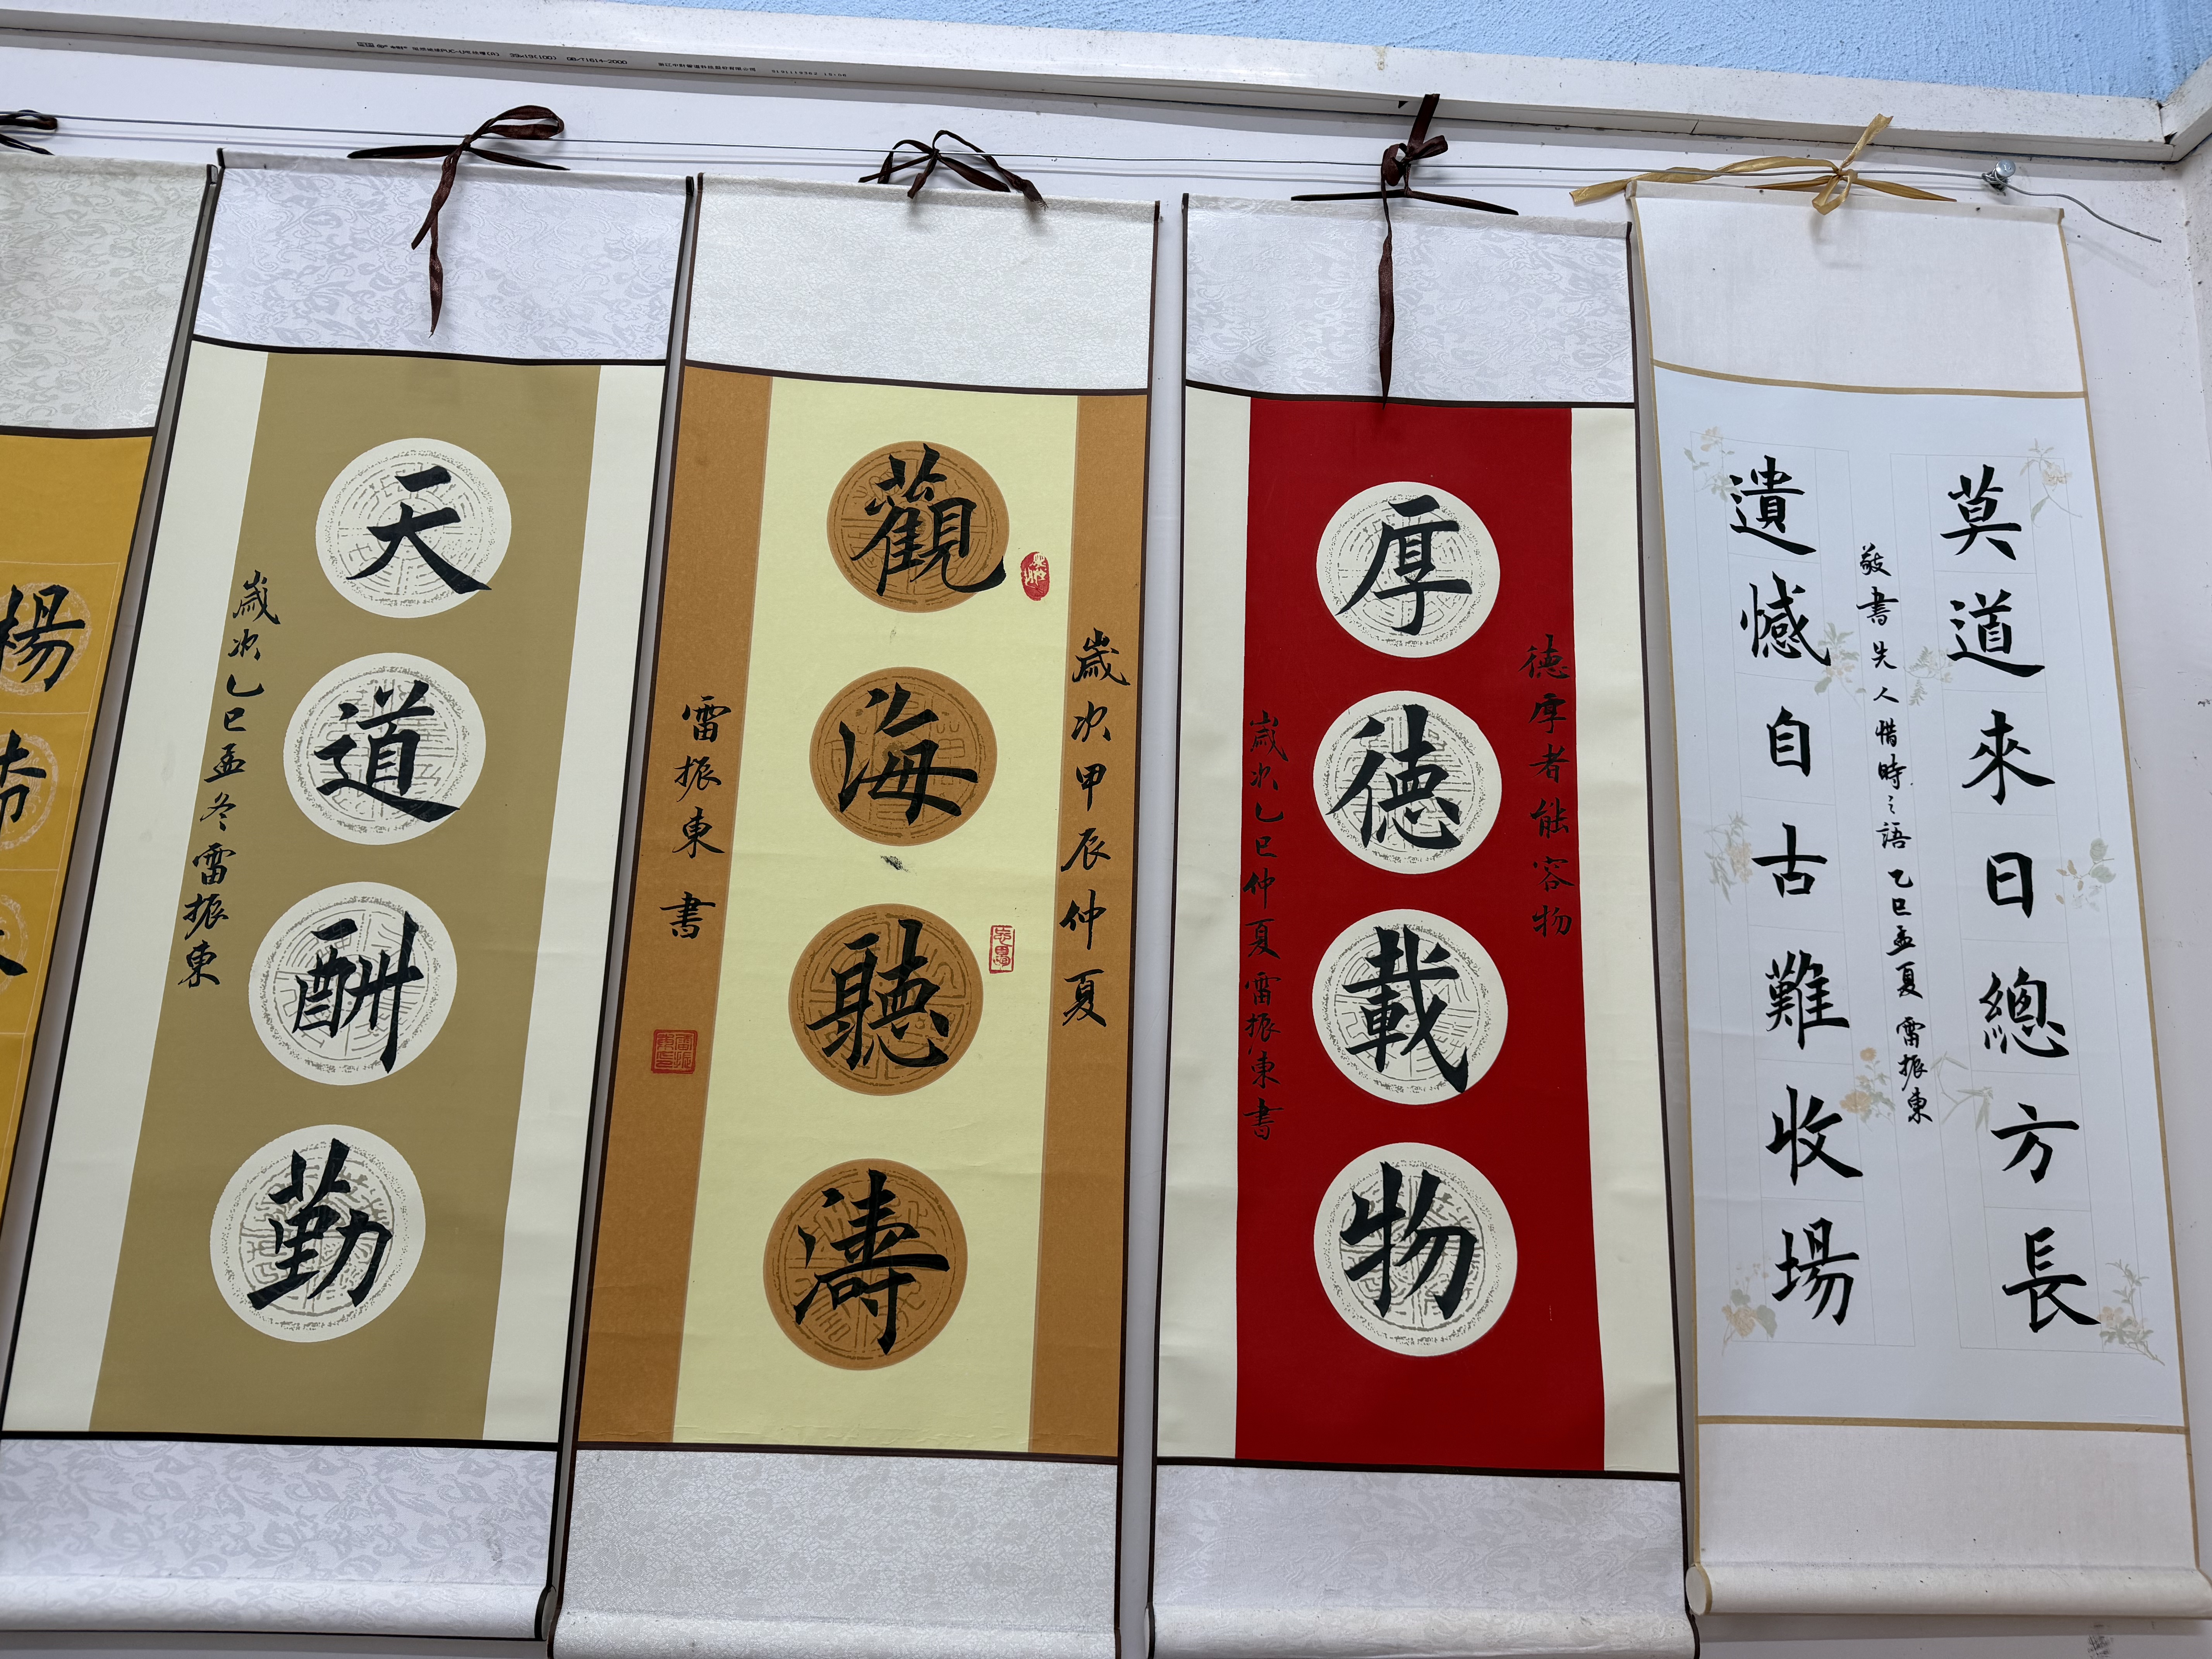 莫道來日總方長
敬書先人惜時之語 乙巳孟夏 雷振東
遺憾自古難收場
德厚者能容物
厚德載物
歲次乙巳仲夏雷振東書
歲次甲辰仲夏
觀海聽濤
雷振東書
天道酬勤
歲次乙巳孟冬雷振東
楊
GB/T1614-2000